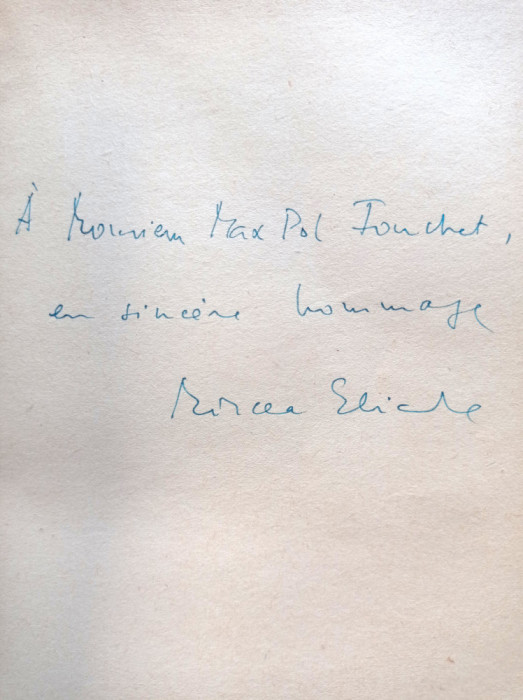 À Monsieur Max Pol Fouchet,
en sincère hommage
Mircea Eliade